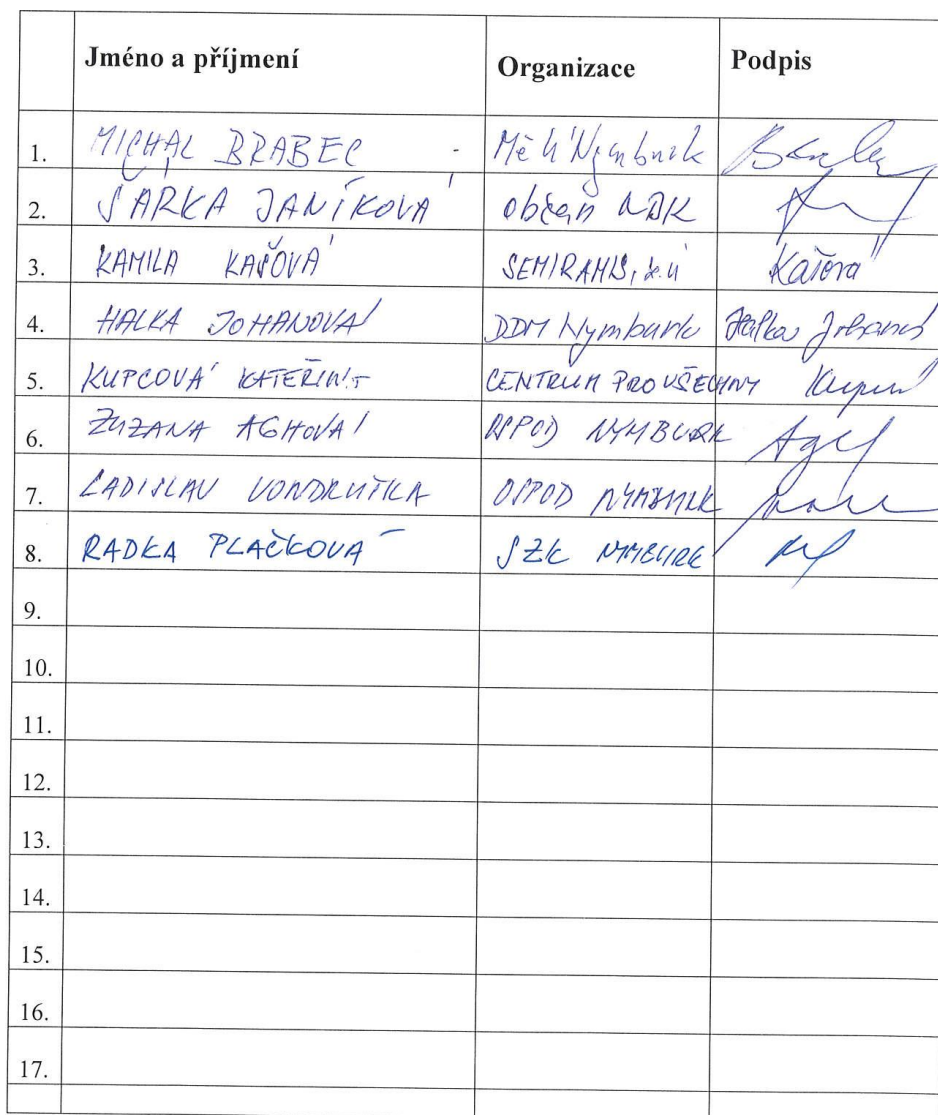 Jméno a příjmení Organizace Podpis
1. MICHAL BRABEC MěÚ Nymburk
2. ŠÁRKA JANÍKOVÁ občan NBK
3. KAMILA KAŠOVÁ SEMIRAMIS, z.ú Kašová
4. HALKA JOHANOVÁ DDM Nymburk Halka
5. KUPCOVÁ KATEŘINA CENTRUM PRO VŠECHNY
6. ZUZANA AGHOVÁ OSPOD NYMBURK
7. LADISLAV VONDRUŠKA OSPOD NYMBURK
8. RADKA PLAČKOVÁ SZK NYMBURK
9.
10.
11.
12.
13.
14.
15.
16.
17.